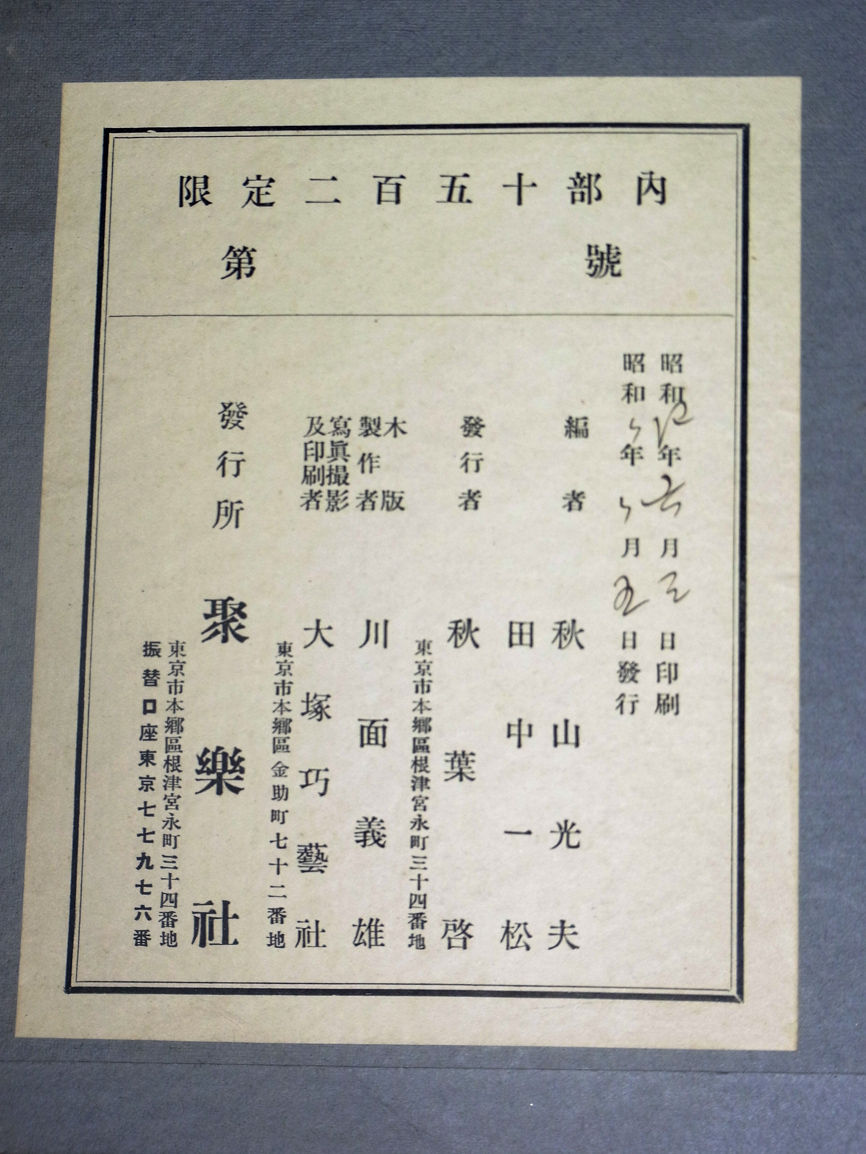 限定二百五十部內
第 號
昭和年六月三日印刷
昭和〃年〃月五日發行
編者 秋山光夫
田中一松
發行者 秋葉啓
東京市本鄕區根津宮永町三十四番地
木版製作者 川面義雄
寫眞撮影及印刷者 大塚巧藝社
東京市本鄕區金助町七十二番地
發行所 聚樂社
東京市本鄕區根津宮永町三十四番地
振替口座東京七七九七六番